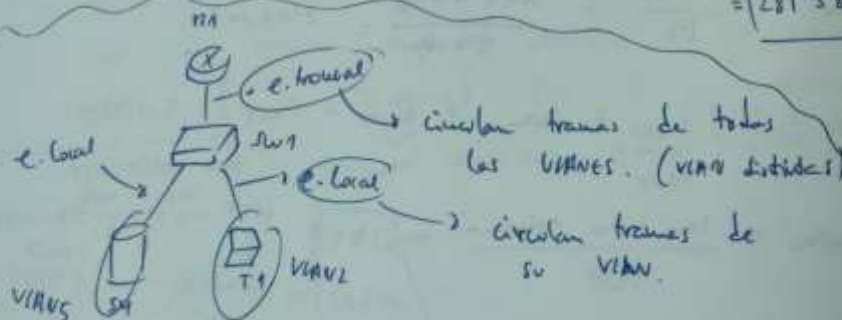 R1
e. troncal
circulan tramas de todas
las VLANES. (VLAN distintas)
SW1
e. local
e. local
circulan tramas de
su VLAN.
VLAN2
T1